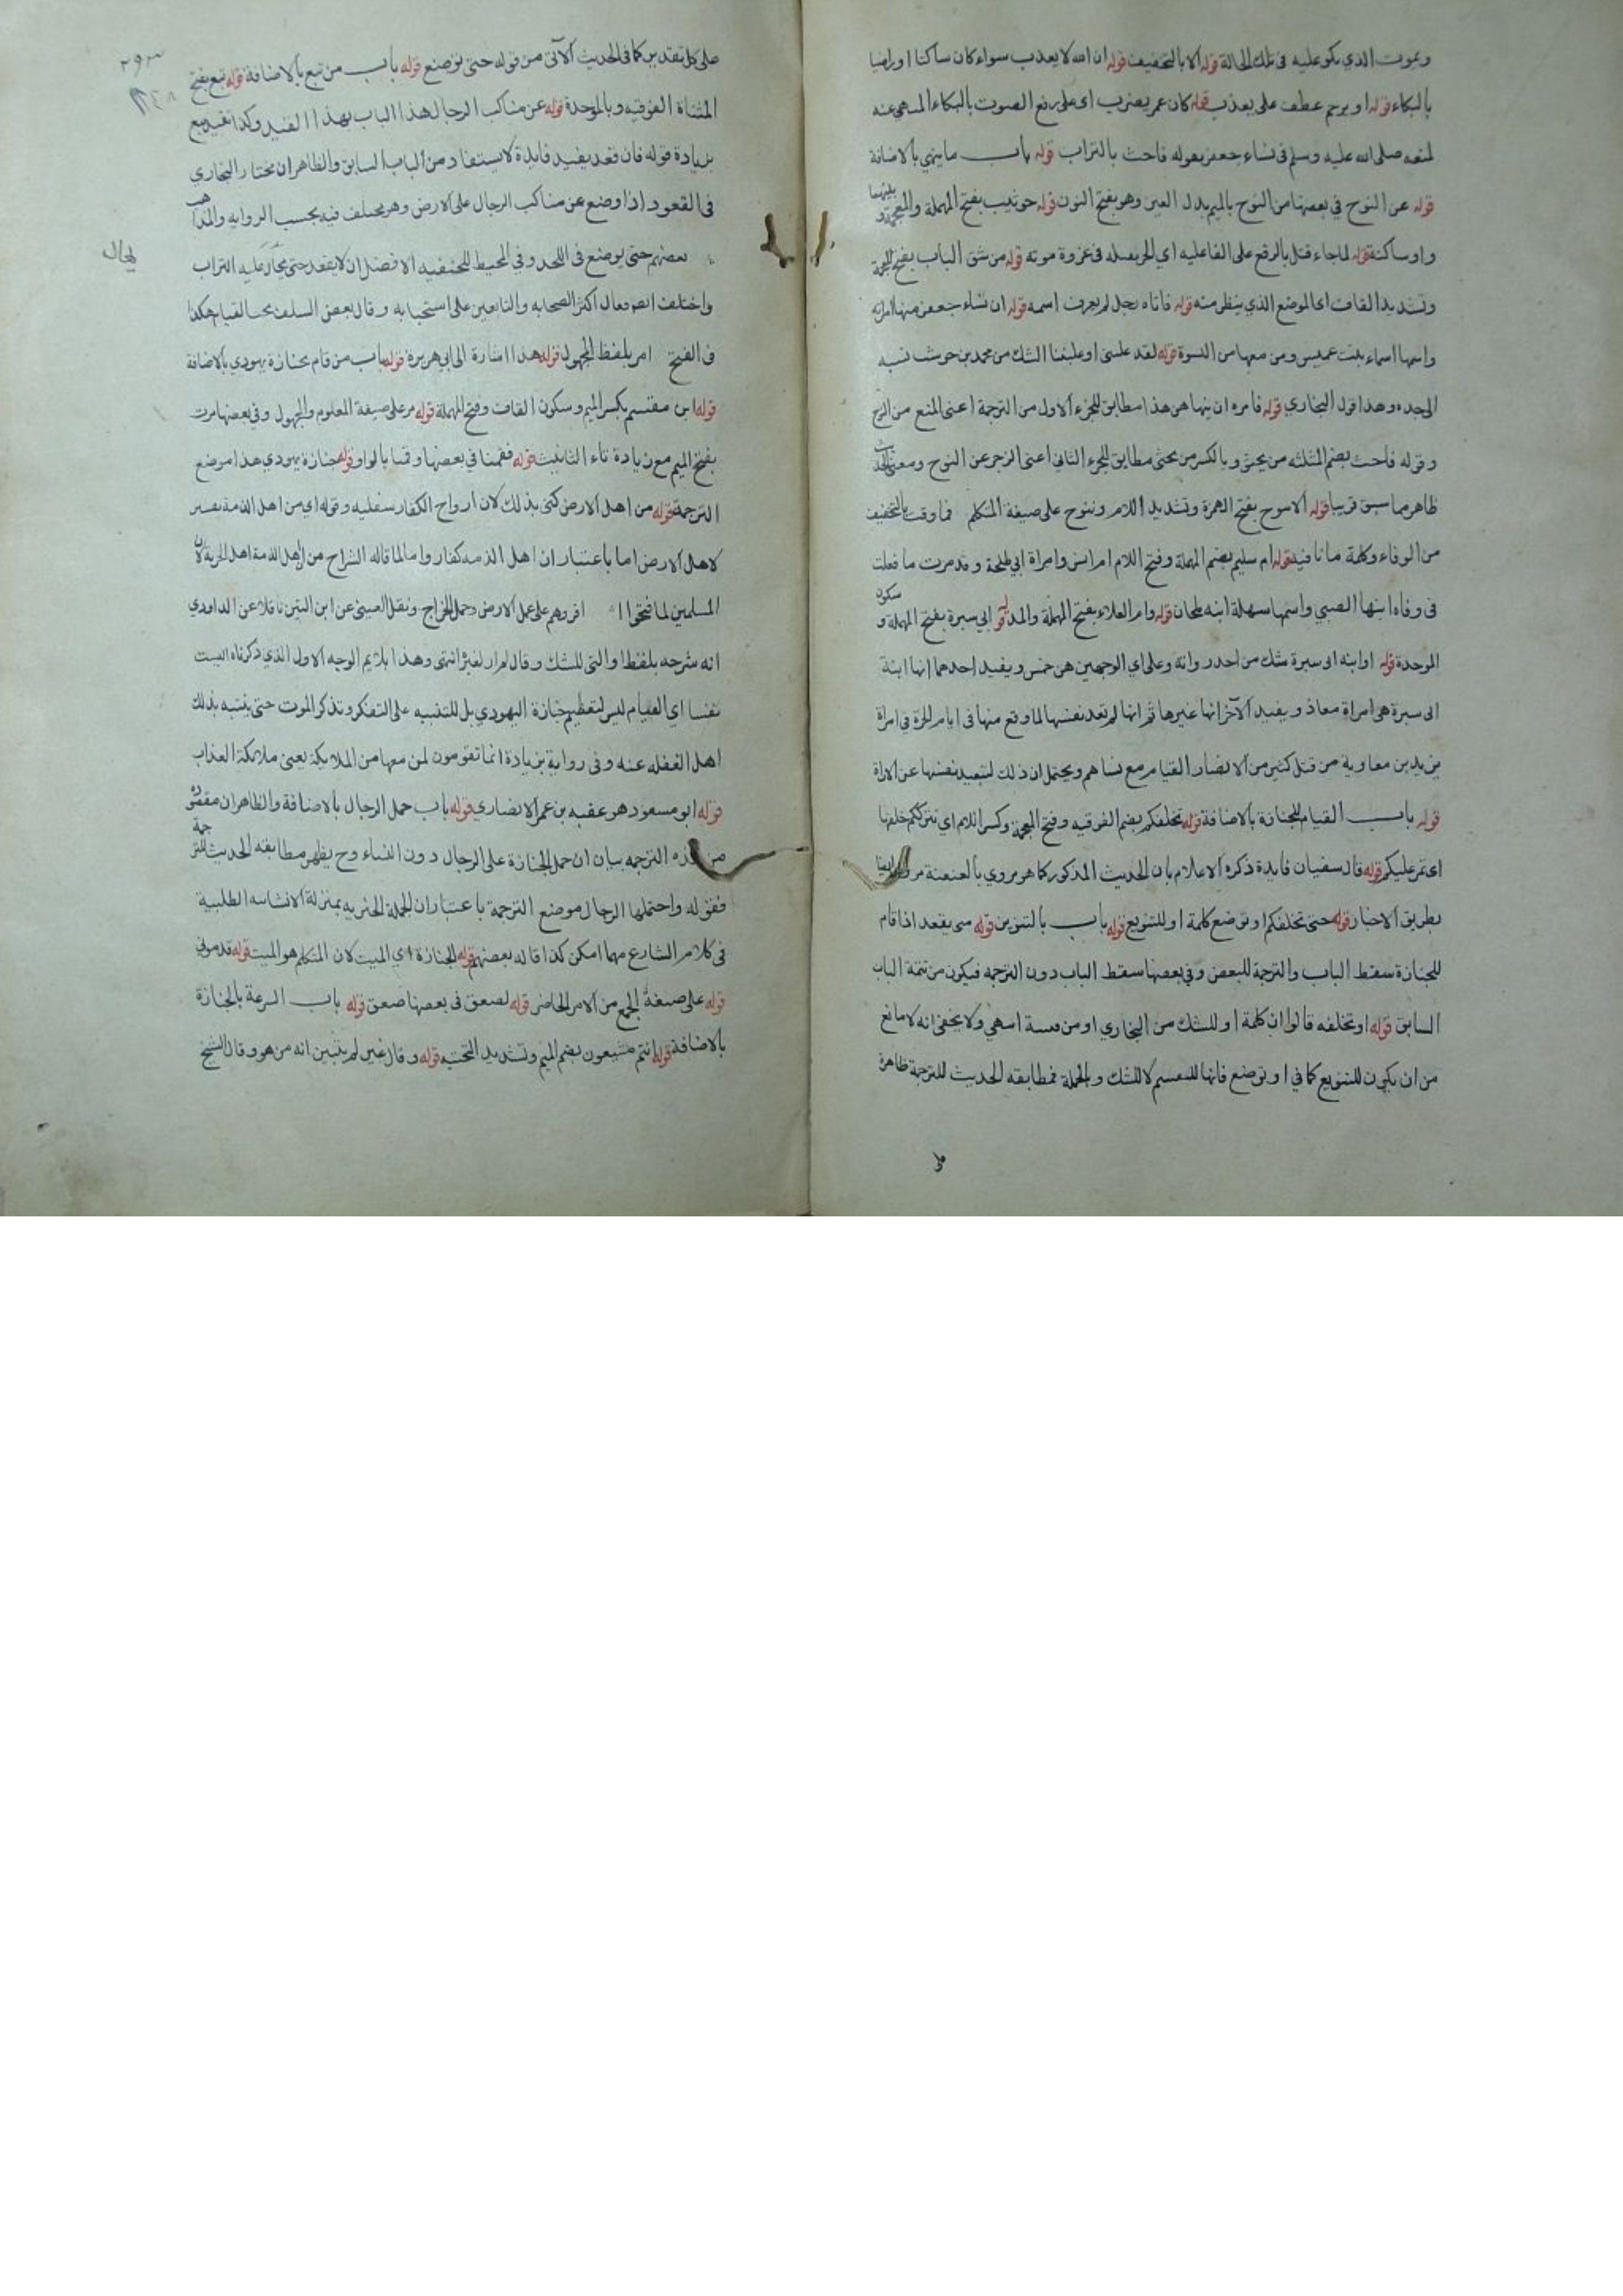 ويموت الذي يكو عليه في تلك الحالة قوله ألا بالتخفيف قوله ان الله لا يعذب سواء كان ساكنا او راضيا
بالبكاء قوله او يرحم عطف على يعذب قوله كان عمر يضرب اى على رفع الصوت بالبكاء المنهى عنه
لمنعه صلى الله عليه وسلم فى نساء جعفر بقوله فاحث بالتراب قوله باب ما ينهي بالاضافة
قوله عن النوح في بعضها من النوح بالميم بدل العين وهو بفتح النون قوله حوشب بفتح المهملة والمعجمة بينهما
واو ساكنة قوله لما جاء قتل بالرفع على الفاعليه اي الخبر بقتله فى غزوة موته قوله من شق الباب بفتح المعجمة
وتشديد القاف اى الموضع الذي ينظر منه قوله فاتاه رجل لم يعرف اسمه قوله ان نساء جعفر منها امراته
واسمها اسماء بنت عميس ومن معها من النسوة قوله لقد غلبنى او غلبننا الشك من محمد بن حوشب نسبه
الى جده وهذا قول البخاري قوله فامره ان ينهاهن هذا مطابق للجزء الاول من الترجمة اعنى المنع من النوح
وقوله فاحث بضم المثلثه من يحثو وبالكسر من يحثى مطابق للجزء الثاني اعنى الزجر عن النوح ومعنى الحديث
ظاهر مما سبق قريبا قوله ألا ننوح بفتح الهمزة وتشديد اللام وننوح على صيغة المتكلم فما وفت بالتخفيف
من الوفاء وكلمة ما نافيه قوله ام سليم بضم المهملة وفتح اللام ام انس وامراة ابي طلحة وقد مرت ما فعلت
فى وفاه ابنها الصبي واسمها سهلة ابنه ملحان قوله وام العلاء بفتح المهملة والمد قوله ابي سبرة بفتح المهملة وسكون
الموحدة قوله او ابنه ابى سبرة شك من احد رواته وعلى اي الوجهين هن خمس ويفيد احدهما انها ابنة
ابى سبرة هى امراة معاذ ويفيد الآخر انها غيرها ثم انها لم تعد نفسها لما وقع منها فى ايام الحرة فى امراة
يزيد بن معاوية من قتل كثير من الانصار القيام مع نساهم ويحتمل ان ذلك لتبعيد نفسها عن الاراة
قوله باب القيام للجنازة بالاضافة قوله تخلفكم بضم الفوقيه وفتح المعجمة وكسر اللام اي تترككم خلفها
اى تمر عليكم قوله قال سفيان فايدة ذكره الاعلام بان الحديث المذكور كما هو مروي بالعنعنة مروى ايضا
بطريق الاخبار قوله حتى تخلفكم او توضع كلمة او للتنويع قوله باب بالتنوين قوله متى يقعد اذا قام
للجنازة سقط الباب والترجمة للبعض وفي بعضها سقط الباب دون الترجمه فيكون من تتمة الباب
السابق قوله او تخلفه قالوا ان كلمة او للشك من البخاري او من قتيبة انتهى ولا يخفى انه لا مانع
من ان يكون للتنويع كما في او توضع فانها للتقسيم لا للشك وبالجملة فمطابقه الحديث للترجمة ظاهرة
على كل تقدير كما فى الحديث الآتى من قوله حتى توضع قوله باب من تبع بالاضافة قوله تبع بفتح
المثناة الفوقيه وبالموحدة قوله عن مناكب الرجال هذا الباب بهذا القيد وكذا تقييد مع
بزيادة قوله فان قعد يفيد فايدة لا يستفاد من الباب السابق والظاهر ان مختار البخاري
فى القعود اذا وضع عن مناكب الرجال على الارض وهو مختلف فيه بحسب الروايه والمذاهب
بعضهم حتى يوضع فى اللحد وفى المحيط للحنفيه الافضل ان لا يقعد حتى يهال عليه التراب
يهال
واختلف ايضا فقال اكثر الصحابه والتابعين على استحبابه وقال بعض السلف يجب القيام هكذا
فى الفتح امر بلفظ المجهول قوله هذا اشارة الى ابي هريرة قوله باب من قام بجنازة يهودي بالاضافة
قوله ابن مقسم بكسر الميم وسكون القاف وفتح المهملة قوله مر على صيغة المعلوم والمجهول وفي بعضها مرت
بفتح الميم مع زيادة تاء التانيث قوله فقمنا في بعضها وقمنا بالواو قوله بجنازة يهودي هذا موضع
الترجمة قوله من اهل الارض كنى بذلك لان ارواح الكفار سفليه وقوله اي من اهل الذمة تفسير
لاهل الارض اما باعتبار ان اهل الذمه كفار واما لما قاله الشراح من ان اهل الذمة اهل الجزية لان
المسلمين لما فتحوا اقروهم على عمل الارض وحمل الخراج ونقل العينى عن ابن التين ناقلا عن الداودي
انه شرحه بلفظ او التى للشك وقال لم ار لغيره انتهى وهذا يلايم الوجه الاول الذي ذكرناه اليست
نفسا اي القيام ليس لتعظيم جنازة اليهودي بل للتنبيه على التفكر وتذكر الموت حتى ينتبه بذلك
اهل الغفله عنه وفى رواية بزيادة انما تقومون لمن معها من الملايكة يعنى ملائكة العذاب
قوله ابو مسعود هو عقبه بن عمر الانصاري قوله باب حمل الرجال بالاضافة والظاهر ان مقصوده
من هذه الترجمه بيان ان حمل الجنازة على الرجال دون النساء وح يظهر مطابقه الحديث للترجمة
فقوله واحتملها الرجال موضع الترجمة باعتبار ان الجملة الخبريه بمنزلة الانشائيه الطلبية
فى كلام الشارع مهما امكن كذا قاله بعضهم قوله الجنازة اي الميت لان المتكلم هو الميت قوله قدموني
قوله على صيغة الجمع من الامر الحاضر قوله لصعق فى بعضها صعق قوله باب السرعة بالجنازة
بالاضافة قوله انتم مشيعون بضم الميم وتشديد التحتيه قوله وقال غيره لم يتبين انه من هو وقال الشيخ